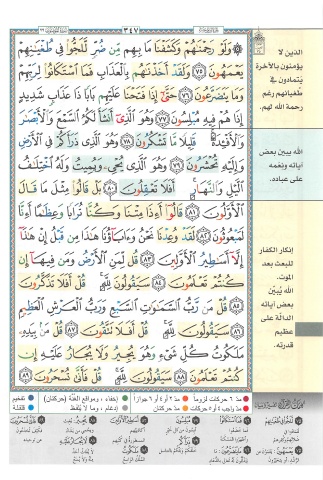 ٣٤٧
۞ وَلَوْ رَحِمْنَٰهُمْ وَكَشَفْنَا مَا بِهِم مِّن ضُرٍّ لَّلَجُّوا۟ فِى طُغْيَٰنِهِمْ
يَعْمَهُونَ ٧٥ وَلَقَدْ أَخَذْنَٰهُم بِٱلْعَذَابِ فَمَا ٱسْتَكَانُوا۟ لِرَبِّهِمْ
وَمَا يَتَضَرَّعُونَ ٧٦ حَتَّىٰٓ إِذَا فَتَحْنَا عَلَيْهِم بَابًا ذَا عَذَابٍ شَدِيدٍ
إِذَا هُمْ فِيهِ مُبْلِسُونَ ٧٧ وَهُوَ ٱلَّذِىٓ أَنشَأَ لَكُمُ ٱلسَّمْعَ وَٱلْأَبْصَٰرَ
وَٱلْأَفْـِٔدَةَ ۚ قَلِيلًا مَّا تَشْكُرُونَ ٧٨ وَهُوَ ٱلَّذِى ذَرَأَكُمْ فِى ٱلْأَرْضِ
وَإِلَيْهِ تُحْشَرُونَ ٧٩ وَهُوَ ٱلَّذِى يُحْىِۦ وَيُمِيتُ وَلَهُ ٱخْتِلَٰفُ
ٱلَّيْلِ وَٱلنَّهَارِ ۚ أَفَلَا تَعْقِلُونَ ٨٠ بَلْ قَالُوا۟ مِثْلَ مَا قَالَ
ٱلْأَوَّلُونَ ٨١ قَالُوٓا۟ أَءِذَا مِتْنَا وَكُنَّا تُرَابًا وَعِظَٰمًا أَءِنَّا
لَمَبْعُوثُونَ ٨٢ لَقَدْ وُعِدْنَا نَحْنُ وَءَابَآؤُنَا هَٰذَا مِن قَبْلُ إِنْ هَٰذَآ
إِلَّآ أَسَٰطِيرُ ٱلْأَوَّلِينَ ٨٣ قُل لِّمَنِ ٱلْأَرْضُ وَمَن فِيهَآ إِن
كُنتُمْ تَعْلَمُونَ ٨٤ سَيَقُولُونَ لِلَّهِ ۚ قُلْ أَفَلَا تَذَكَّرُونَ
٨٥ قُلْ مَن رَّبُّ ٱلسَّمَٰوَٰتِ ٱلسَّبْعِ وَرَبُّ ٱلْعَرْشِ ٱلْعَظِيمِ
٨٦ سَيَقُولُونَ لِلَّهِ ۚ قُلْ أَفَلَا تَتَّقُونَ ٨٧ قُلْ مَنۢ بِيَدِهِۦ
مَلَكُوتُ كُلِّ شَىْءٍ وَهُوَ يُجِيرُ وَلَا يُجَارُ عَلَيْهِ إِن
كُنتُمْ تَعْلَمُونَ ٨٨ سَيَقُولُونَ لِلَّهِ ۚ قُلْ فَأَنَّىٰ تُسْحَرُونَ ٨٩
الذين لا
يؤمنون بالآخرة
يتمادون في
طغيانهم رغم
رحمة الله لهم.
الله يبين بعض
آياته ونعمه
على عباده.
إنكار الكفار
للبعث بعد
الموت.
الله يُبيّن
بعض آياته
الدالة على
عظيم
قدرته.
مد ٦ حركات لزوماً مد ٢ أو ٤ أو ٦ جوازاً إخفاء، ومواقع الغنّة (حركتان) تفخيم
مد واجب ٤ أو ٥ حركات مد حركتان إدغام، وما لا يُلفظ قلقلة